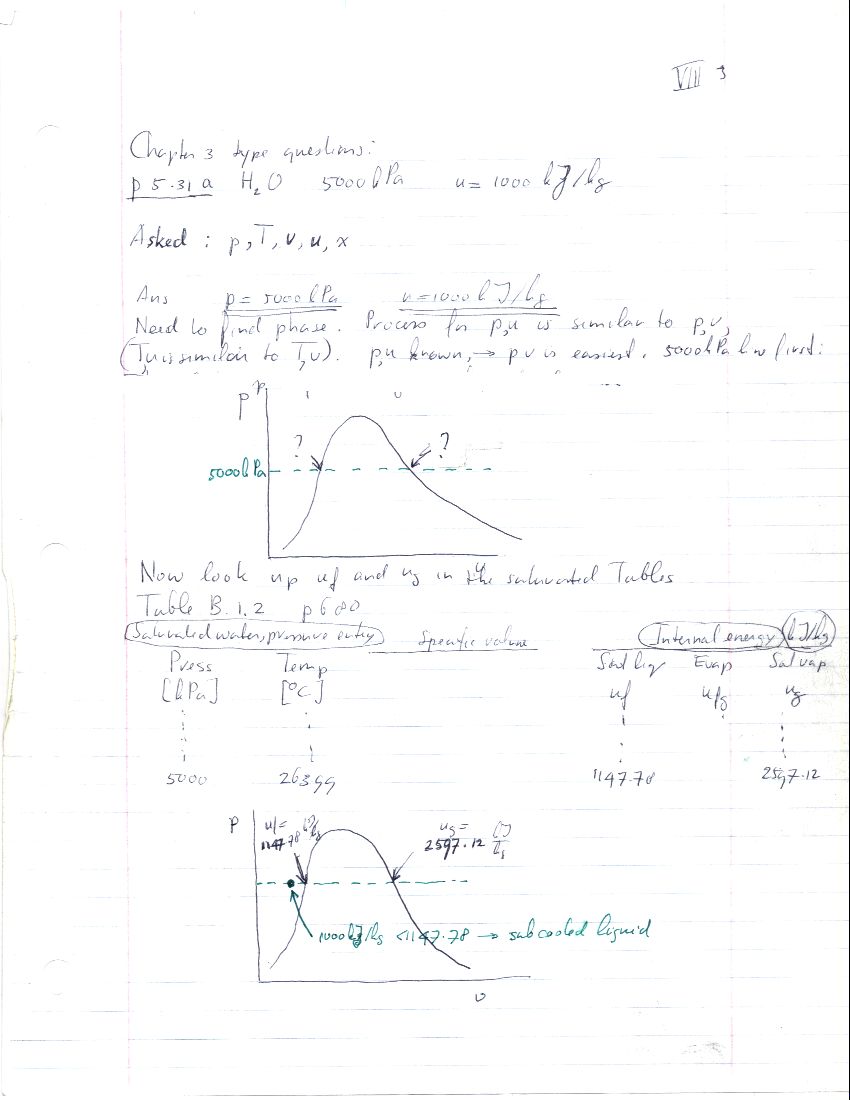 VIII 3
Chapter 3 type questions:
p 5.31 a H2O 5000 kPa u = 1000 kJ/kg
Asked : p, T, v, u, x
Ans p = 5000 kPa u = 1000 kJ/kg
Need to find phase. Process for p,u is similar to p,v,
(T,u is similar to T,v). p,u known, → pv is easiest. 5000 kPa line first:
p p
v
? ?
5000 kPa
v
Now look up uf and ug in the saturated Tables
Table B.1.2 p 680
Saturated water, pressure entry Specific volume Internal energy (kJ/kg)
Press Temp Sat liq Evap Sat vap
[kPa] [°C] uf ufg ug
5000 263.99 1147.78 2597.12
p uf = 1147.78 kJ/kg ug = 2597.12 kJ/kg
1000 kJ/kg < 1147.78 → subcooled liquid
v